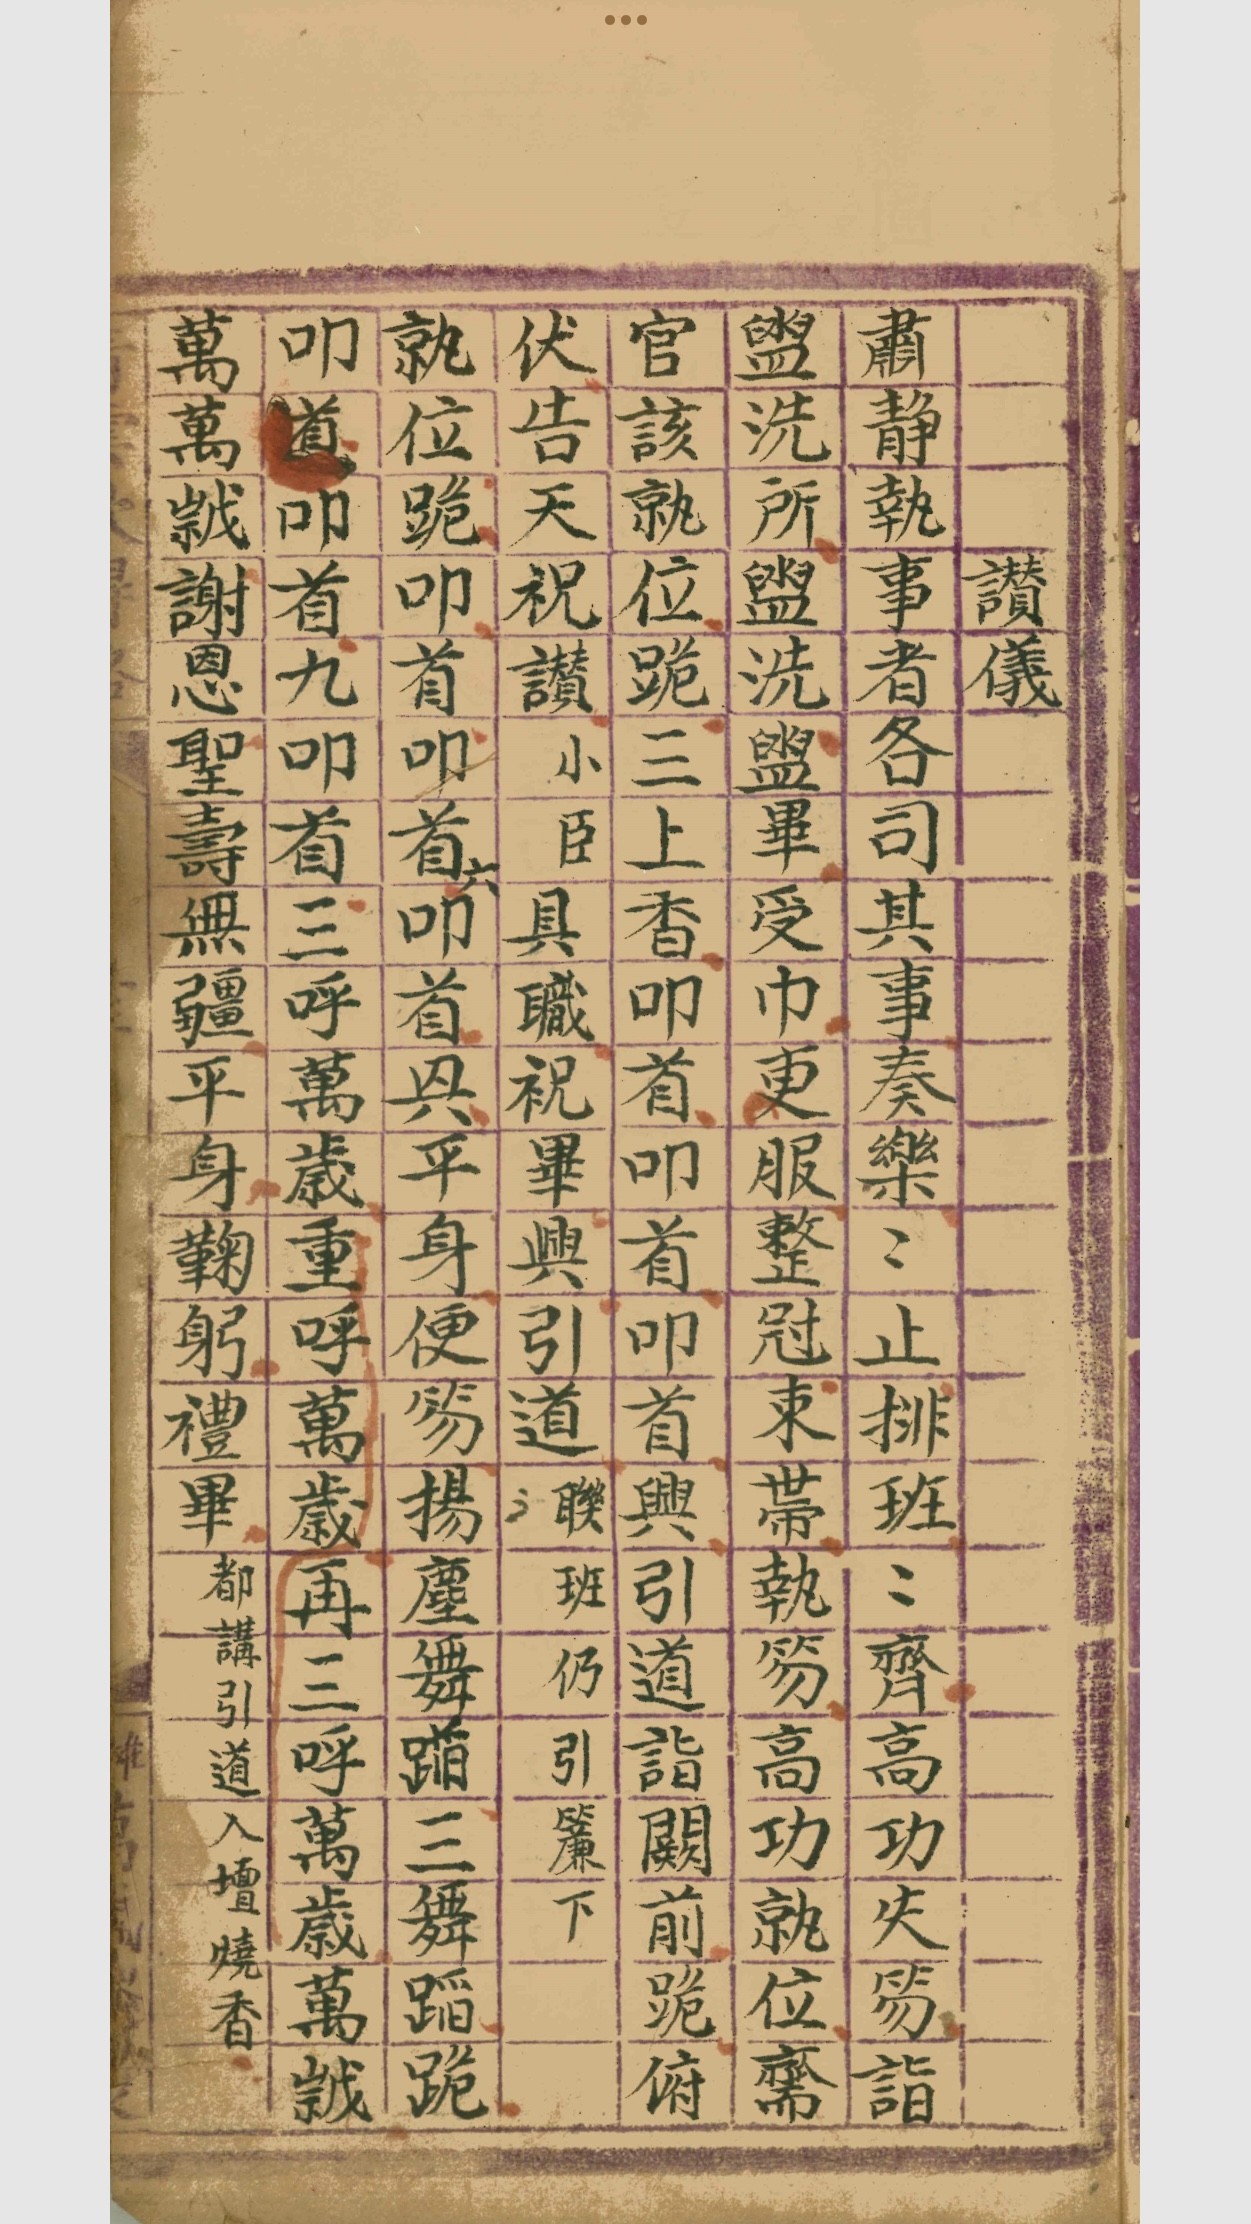 讃儀
肅静執事者各司其事奏樂〻止排班〻齊高功失笏詣
盥洗所盥洗盥畢受巾更服整冠束帯執笏高功就位齋
官該就位跪三上香叩首叩首叩首興引道詣闕前跪俯
伏告天祝讃小臣具職祝畢興引道聯班仍引簾下
就位跪叩首叩首六叩首具平身便笏揚塵舞蹈三舞蹈跪
叩道叩首九叩首三呼萬歳重呼萬歳再三呼萬歳萬誠
萬萬誠謝恩聖壽無疆平身鞠躬禮畢都講引道入壇燒香